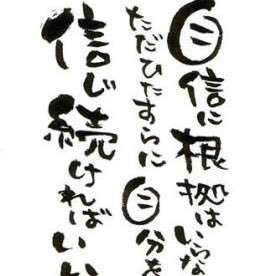 自信に根拠はいらな
ただひたすらに自分を
信じ続ければいい